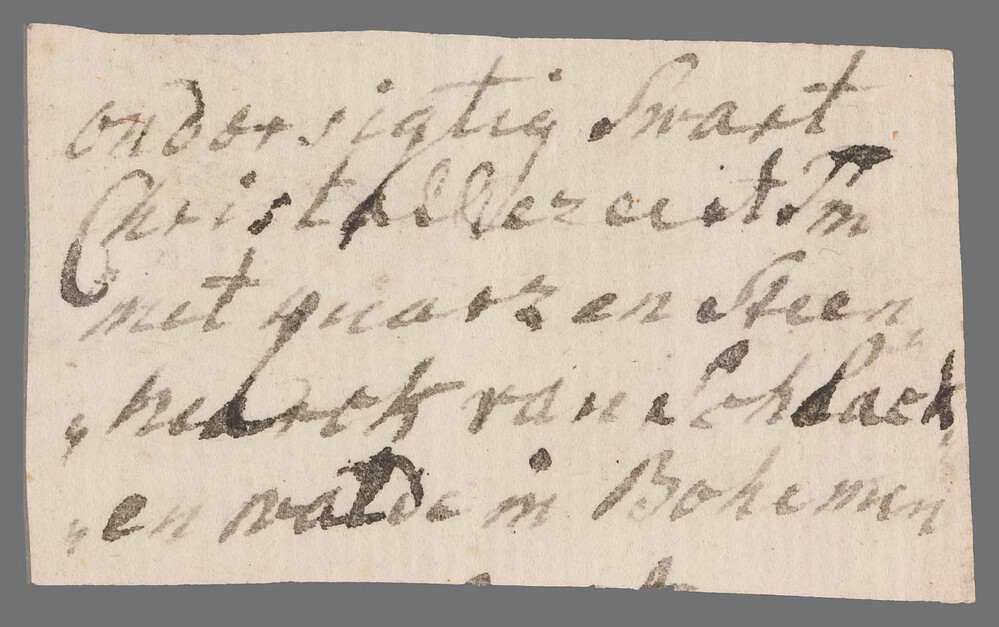 ondorsigtig Swart
Christallezeert Tin
met quarz en Steen
„ merck van Schlack„
„ en walde in Bohemen